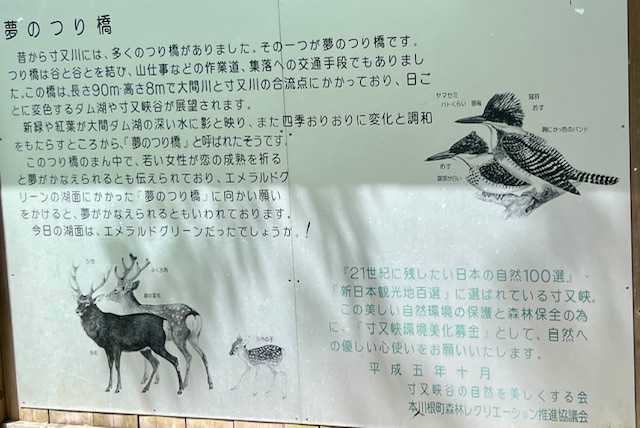 夢のつり橋
昔から寸又川には、多くのつり橋がありました。その一つが夢のつり橋です。
つり橋は谷と谷とを結び、山仕事などの作業道、集落への交通手段でもありまし
た。この橋は、長さ90m・高さ8mで大間川と寸又川の合流点にかかっており、日ご
とに変色するダム湖や寸又峡谷が展望されます。
新緑や紅葉が大間ダム湖の深い水に影と映り、また四季おりおりに変化と調和
をもたらすところから、「夢のつり橋」と呼ばれたそうです。
このつり橋のまん中で、若い女性が恋の成熟を祈る
と夢がかなえられるとも伝えられており、エメラルドグ
リーンの湖面にかかった「夢のつり橋」に向かい願い
をかけると、夢がかなえられるともいわれております。
今日の湖面は、エメラルドグリーンだったでしょうか。!
ヤマセミ
ハトくらい
冠羽
おす
胸にかっ色のバンド
めす
『21世紀に残したい日本の自然100選』・
「新日本観光地百選」に選ばれている寸又峡。
この美しい自然環境の保護と森林保全の為
に、「寸又峡環境美化募金」として、自然へ
の優しい心使いをお願いいたします。
平成五年十月
寸又峡谷の自然を美しくする会
本川根町森林レクリエーション推進協議会